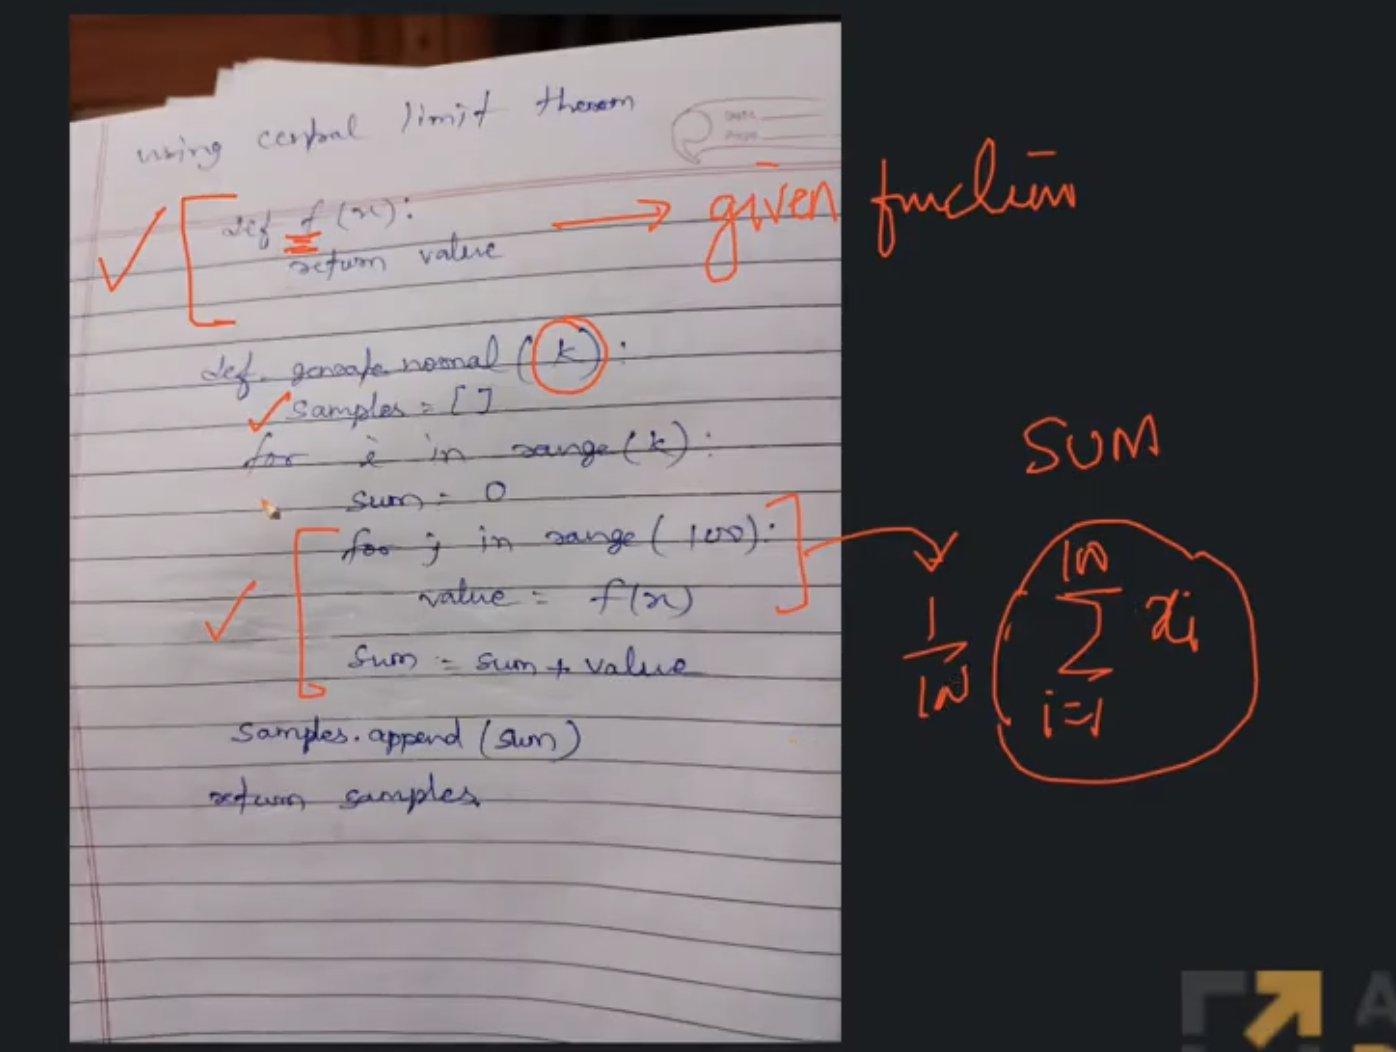 using central limit therom
Date
Page
def f(x):
return value
given function
def generate normal (k):
samples = []
for i in range(k):
sum = 0
for j in range(100):
value = f(x)
sum = sum + value
samples.append(sum)
return samples
SUM
1/100 100 ∑ i=1 xi
A